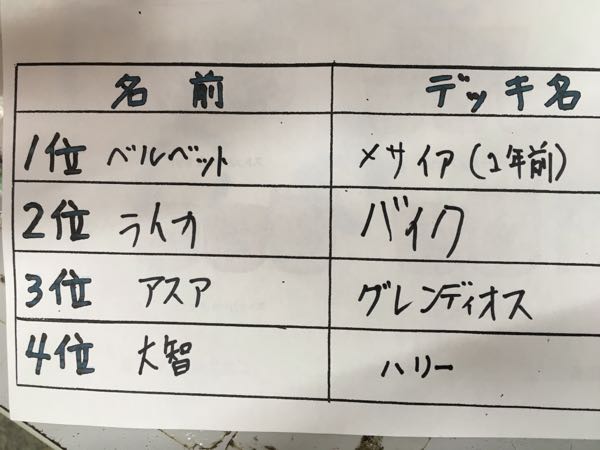 名前 デッキ名
1位 ベルベット メサイア(2年前)
2位 ライオ バイク
3位 アスア グレンディオス
4位 大智 ハリー